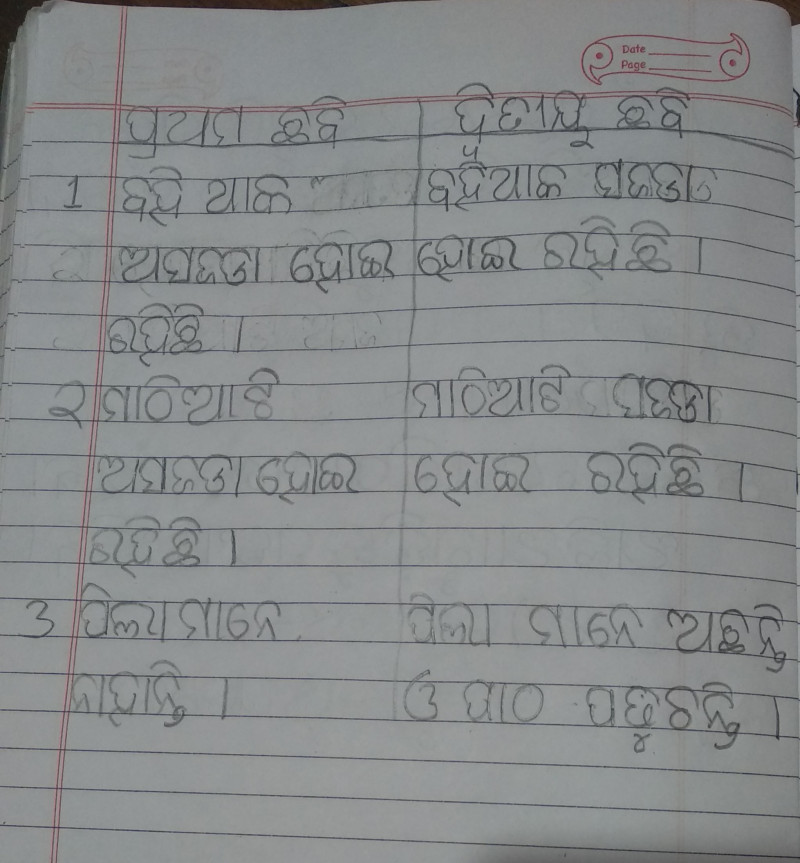 Date
Page
ପ୍ରଥମ ଛବି ଦ୍ବିତୀୟ ଛବି
1 ବହି ଥାକ ବହିଁଥାକ ସଜଡା
ଅସଜଡା ହୋଇ ହୋଇ ରହିଛି ।
ରହିଛି ।
୨ ମାଠିଆଟି ମାଠିଆଟି ସଜଡା
ଅସଜଡା ହୋଇ ହୋଇ ରହିଛି ।
ରହିଛି ।
3 ପିଲାମାନେ ପିଲା ମାନେ ଅଛନ୍ତି
ନାହାନ୍ତି । ଓ ପାଠ ପଢୁଚନ୍ତି ।